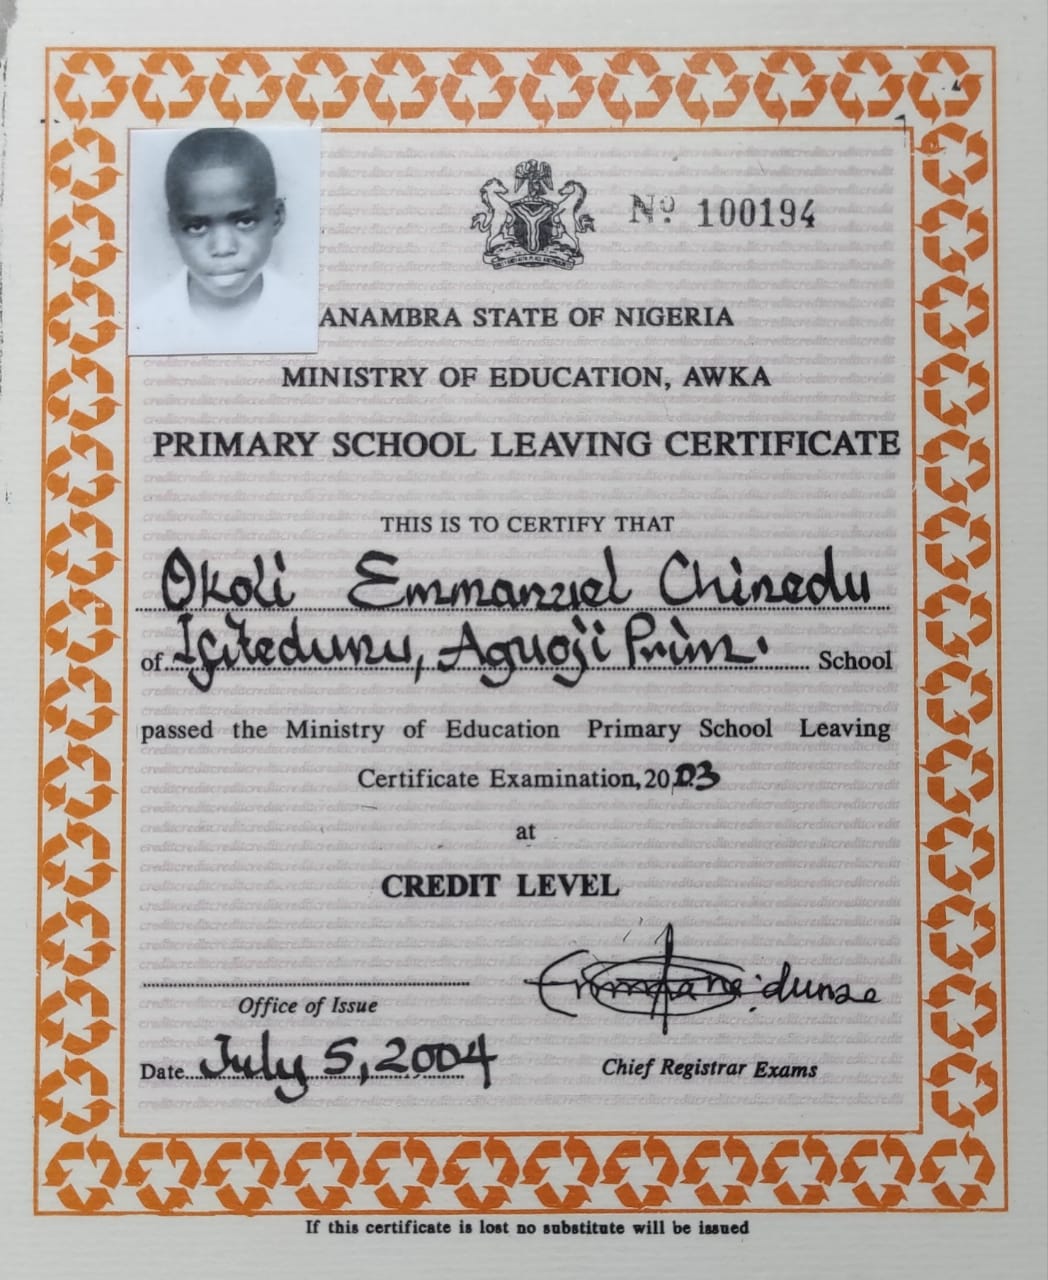 Nº 100194
ANAMBRA STATE OF NIGERIA
MINISTRY OF EDUCATION, AWKA
PRIMARY SCHOOL LEAVING CERTIFICATE
THIS IS TO CERTIFY THAT
Okoli Emmanuel Chinedu
of Ifitedunu, Aguoji Prim. School
passed the Ministry of Education Primary School Leaving
Certificate Examination, 2003
at
CREDIT LEVEL
Office of Issue
Date July 5, 2004
Chief Registrar Exams
If this certificate is lost no substitute will be issued